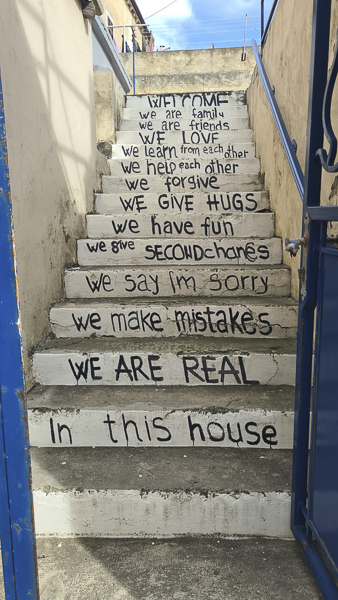 WELCOME
we are family
we are friends
WE LOVE
we learn from each other
we help each other
we forgive
WE GIVE HUGS
we have fun
we give SECONDchanes
we say I'm sorry
we make mistakes
WE ARE REAL
In this house